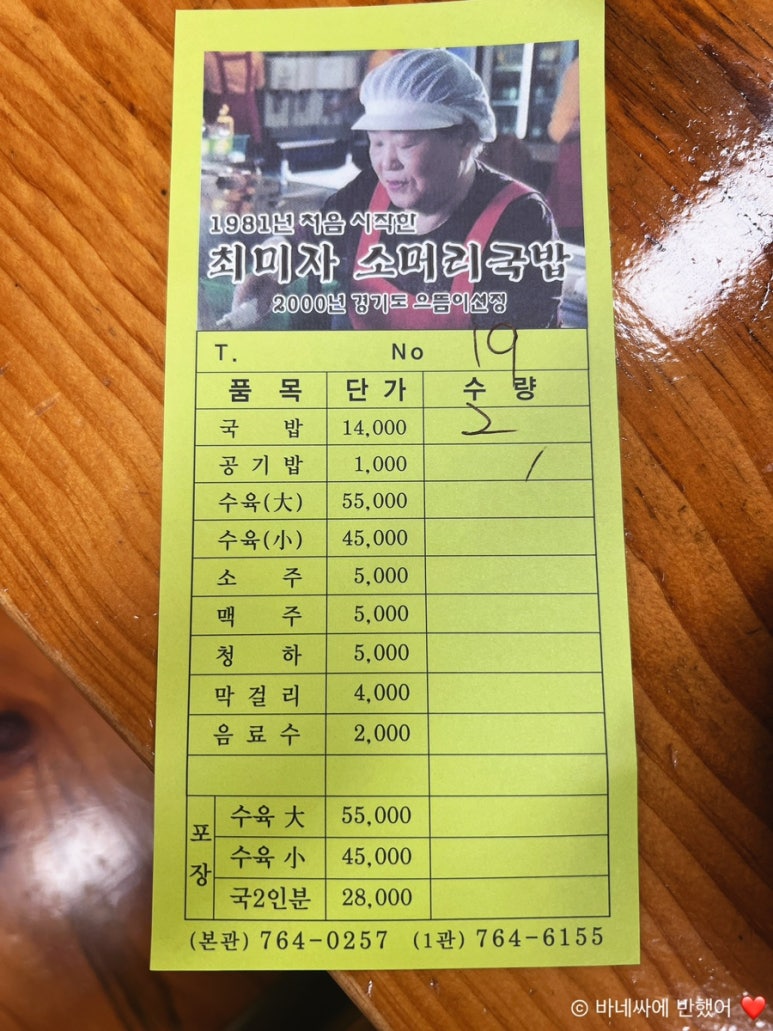 1981년 처음 시작한
최미자 소머리국밥
2000년 경기도 으뜸이선정
T. No 19
품 목 단 가 수 량
국 밥 14,000 2
공 기 밥 1,000 /
수육(大) 55,000
수육(小) 45,000
소 주 5,000
맥 주 5,000
청 하 5,000
막 걸 리 4,000
음 료 수 2,000
포장
수육 大 55,000
수육 小 45,000
국2인분 28,000
(본관) 764-0257 (1관) 764-6155
© 바네싸에 반했어 ❤️